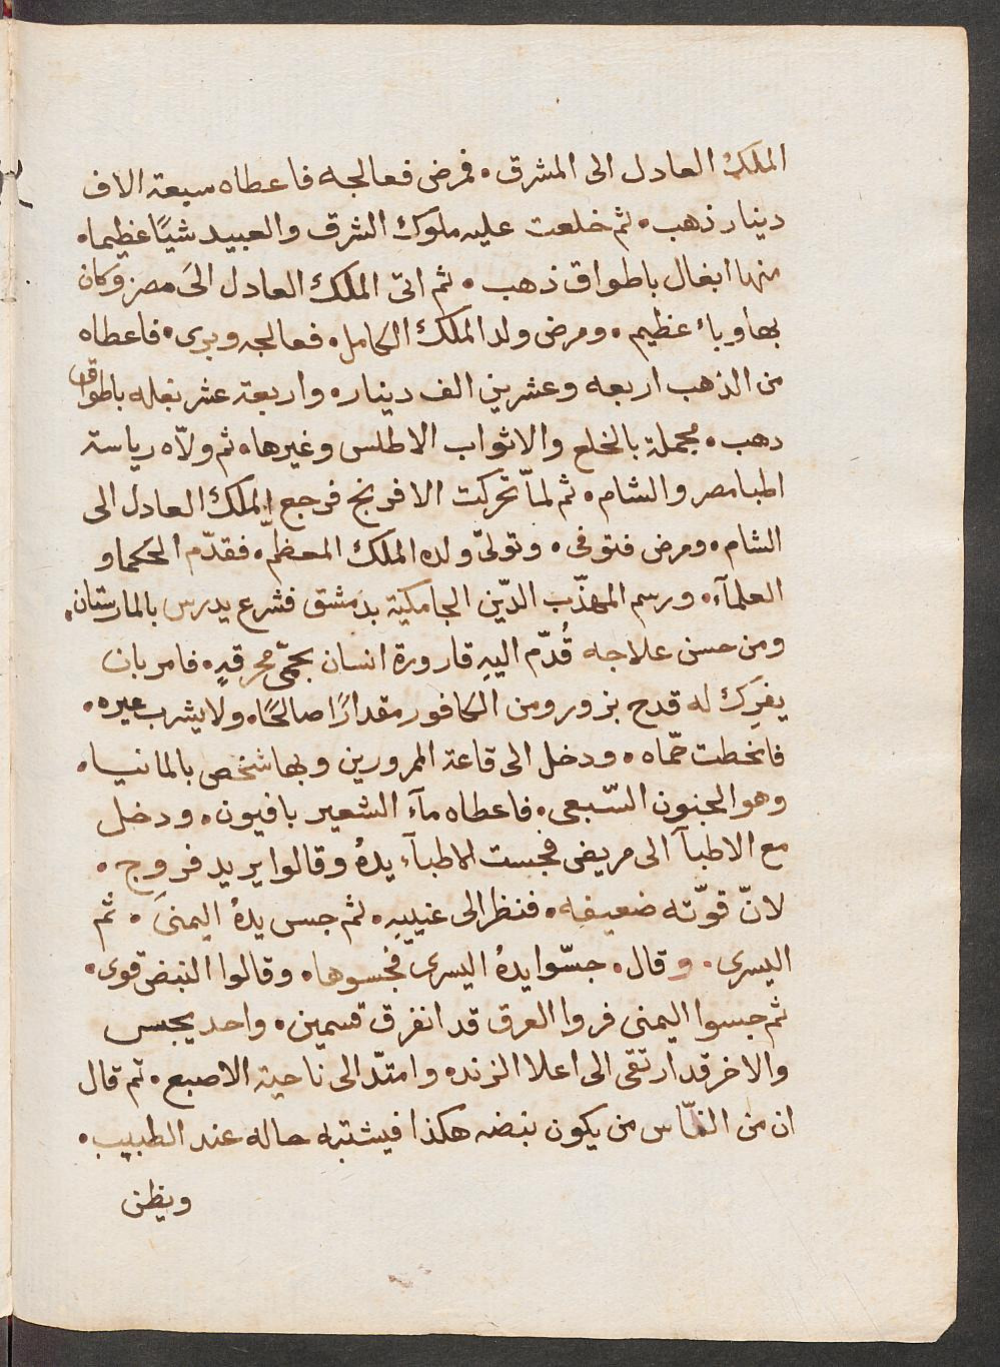 الملك العادل الى المشرق. فمرض فعالجه فاعطاه سبعة الاف
دينار ذهب. ثم خلعت عليه ملوك الشرق والعبيد شيًا عظيما.
منها ابغال باطواق ذهب. ثم اتى الملك العادل الىَ مصر وكان
بها وباءٌ عظيم. ومرض ولد الملك الكامل. فعالجه وبرى. فاعطاه
من الذهب اربعه وعشرين الف دينار. واربعة عشر بغله باطواق
دهب. مجملة بالخلع والاثواب الاطلس وغيرها. ثم ولّاه رياسة
اطبا مصر والشام. ثم لماّ تحركت الافرنج فرجع الملك العادل الى
الشام. ومرض فتوفى. وتولىّ ولده الملك المعظّم. فقدّم الحكما و
العلمآء. ورسم المهذّب الدّين الجامكية بدمشق فشرع يدرس بالمارستان.
ومن حسن علاجه قُدّم اليهِ قارورة انسان بحمّى محرقهٍ. فامر بان
يفرَك له قدح بزور ومن الكافور مقدارًا صالحًا. ولا يشرب غيره.
فانحطت حمّاه. ودخل الى قاعة الممرورين وبها شخص بالمانيا.
وهو الجنون السّبعى. فاعطاه مآء الشعير بافيون. ودخل
مع الاطبآ الى مريض فجست الاطبآء يدهُ وقالوا يريد فروج.
لانّ قوّته ضعيفه. فنظر الى عنييهِ. ثم جس يدهُ اليمنىَ. ثم
اليسرى. وقال. جسّوا يدهُ اليسرى فجسوها. وقالوا النبض قوى.
ثم جسوا اليمنى فروا العرق قد انفرق قسمين. واحد يجس
والاخر قد ارتقى الى اعلا الزنده وامتدّ الى ناحية الاصبع. ثم قال
ان من النّاس من يكون نبضه هكذا فيشتبه حاله عند الطبيب.
ويظن